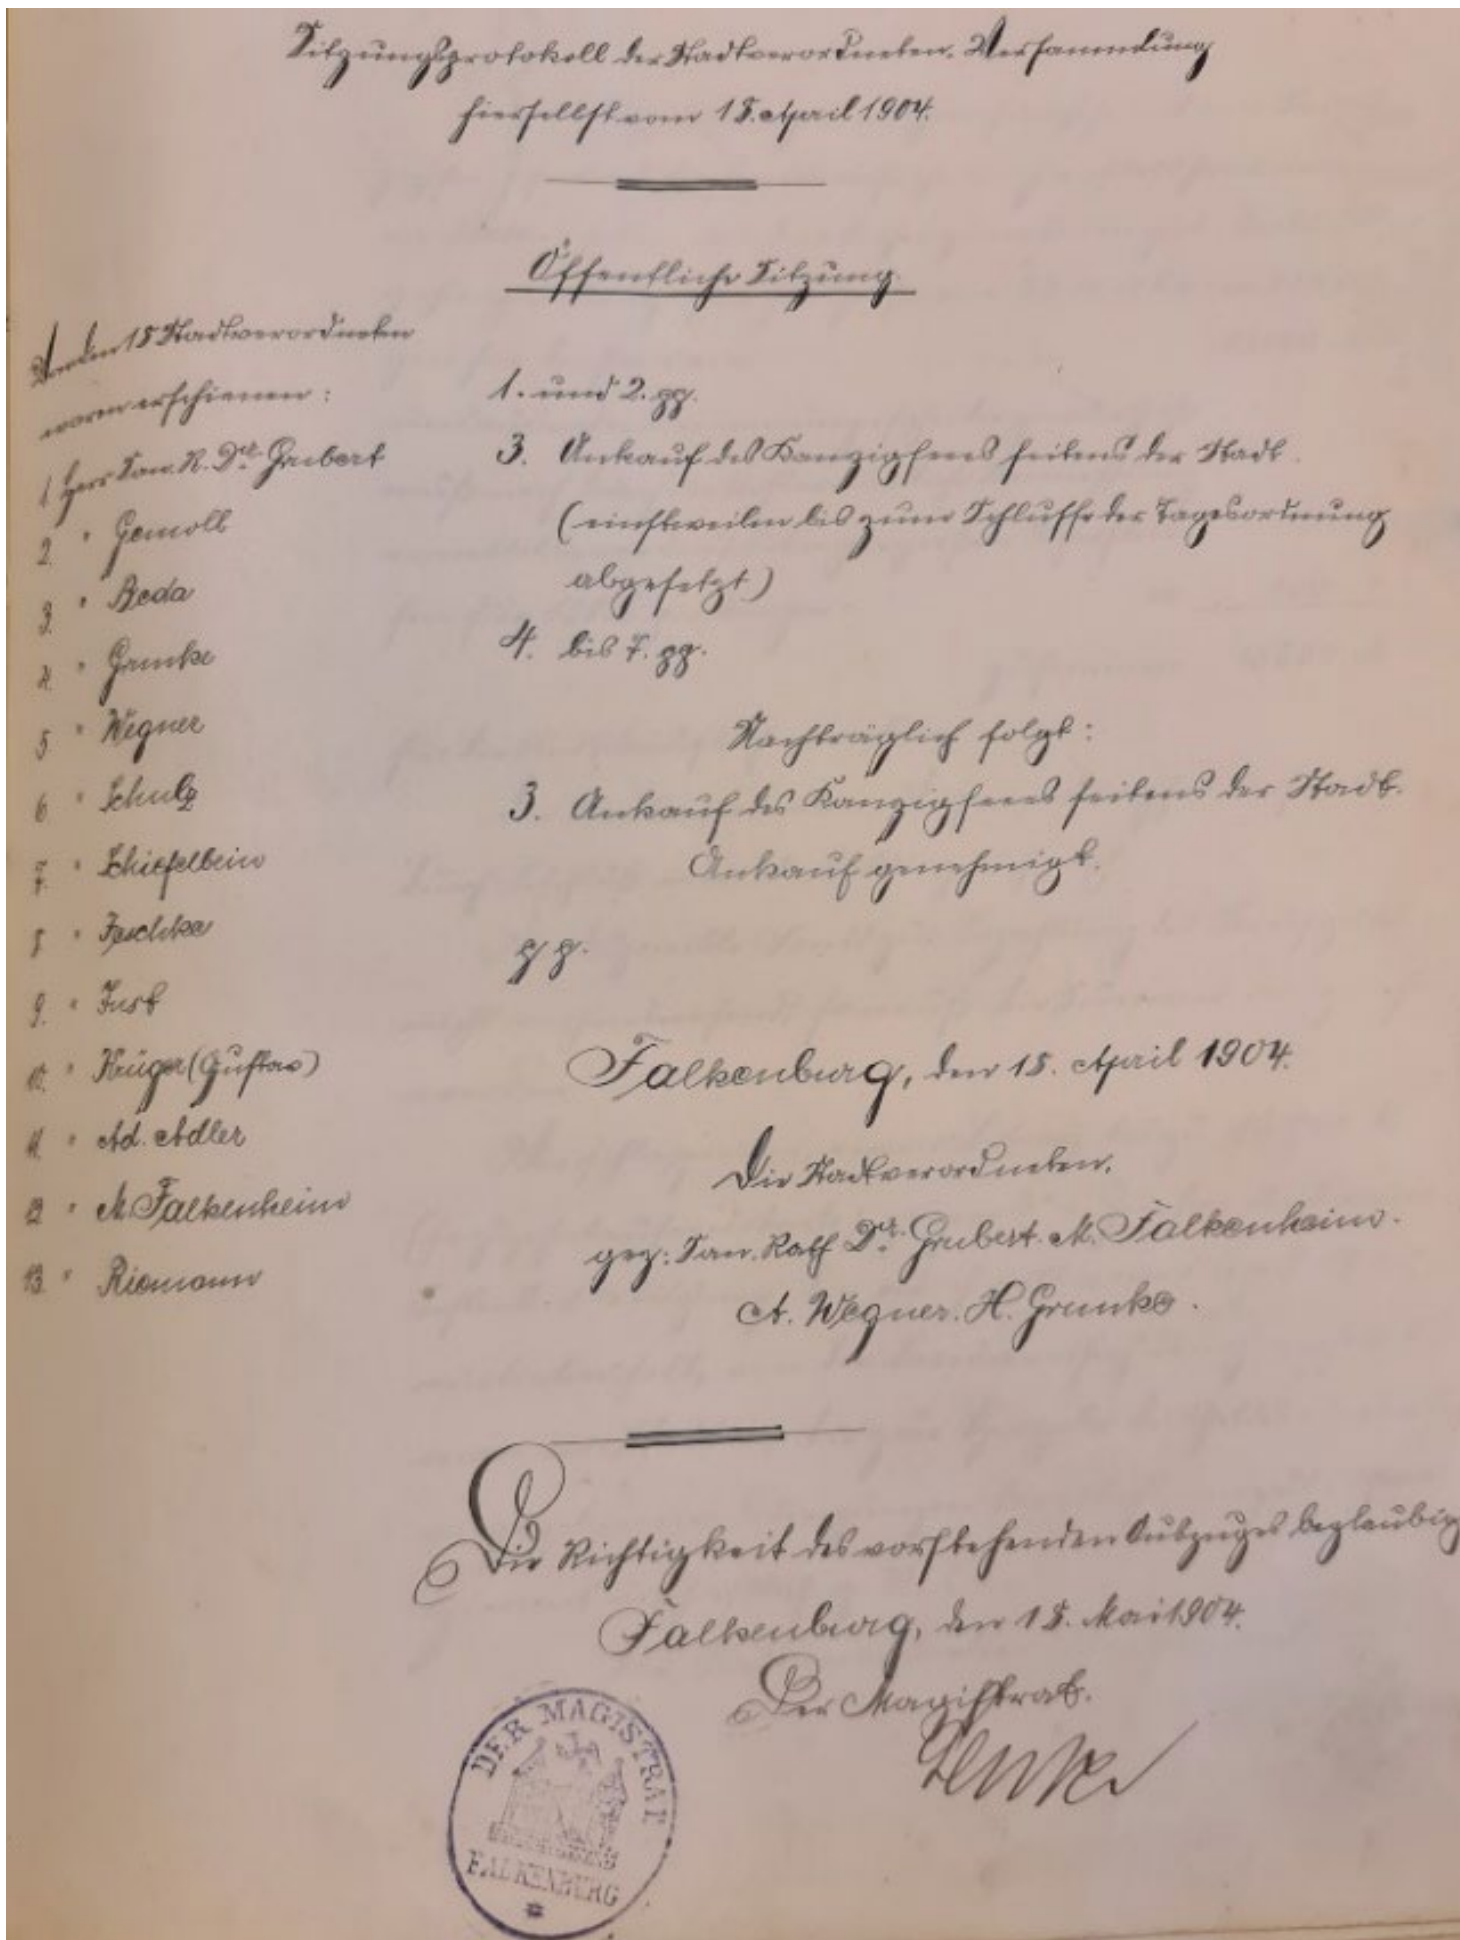 Sitzungsprotokoll der Stadtverordneten-Versammlung
hierselbst vom 18. April 1904.
Öffentliche Sitzung.
Von den 18 Stadtverordneten
waren erschienen:
1. Herr San. R. Dr. Grubert
2. " Gemoll
3. " Beda
4. " Grunke
5 " Wegner
6 " Schulz
7. " Schiefelbein
8 " Jeschke
9. " Just
10. " Krüger (Gustav)
11. " Ad. Adler
12 " M. Falkenheim
13. " Riemann
1. und 2. pp.
3. Ankauf des Kanzigsees seitens der Stadt.
(einstweilen bis zum Schlusse der Tagesordnung
abgesetzt)
4. bis 7. pp.
Nachträglich folgt:
3. Ankauf des Kanzigsees seitens der Stadt.
Ankauf genehmigt.
pp.
Falkenburg, den 18. April 1904.
Die Stadtverordneten.
gez: San. Rath Dr. Grubert. M. Falkenheim.
A. Wegner. H. Grunke.
Die Richtigkeit des vorstehenden Auszuges beglaubig
Falkenburg, den 18. Mai 1904.
Der Magistrat.
DER MAGISTRAT
FALKENBURG